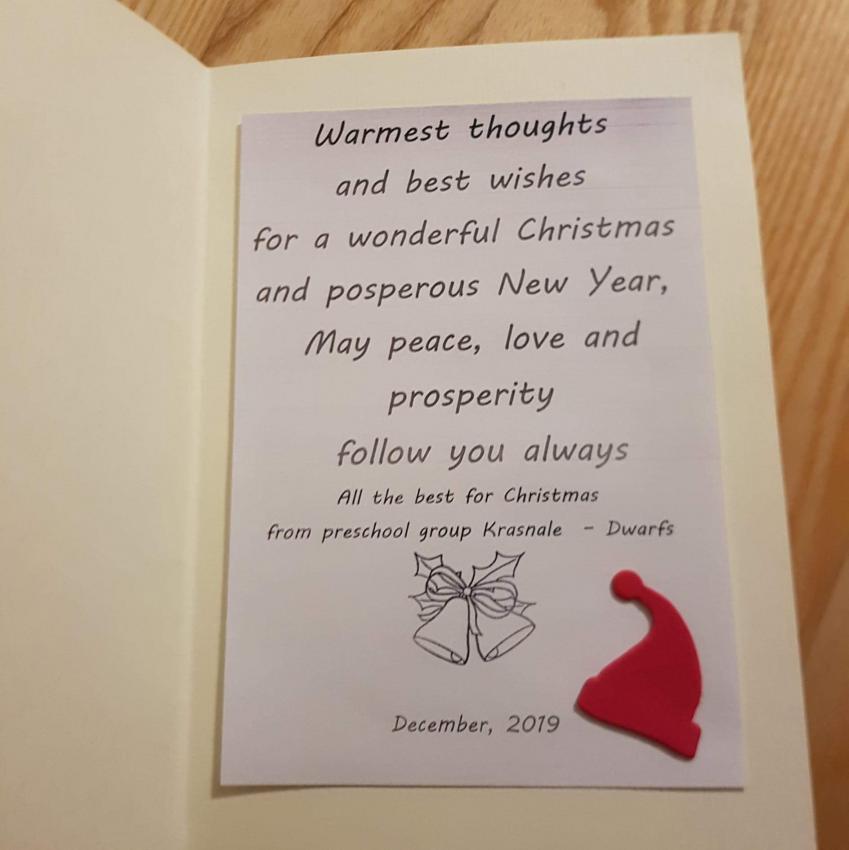 Warmest thoughts
and best wishes
for a wonderful Christmas
and posperous New Year,
May peace, love and
prosperity
follow you always
All the best for Christmas
from preschool group Krasnale - Dwarfs
December, 2019